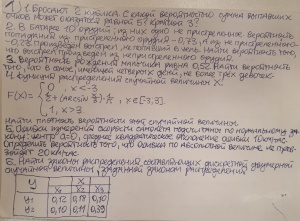 ① 1. Бросают 2 кубика. С какой вероятностью сумма выпавших
очков может оказаться равной 5? кратной 3?
2. В батарее 10 орудий, из них одно не пристрелянное. Вероятность
попадания из пристрелянного орудия - 0,73, а из не пристрелянно-
го - 0,23. Произведён выстрел, не попавший в цель. Найти вероятность того,
что выстрел произведён из не пристрелянного орудия.
3. Вероятность рождения мальчика равна 0,52. Найти вероятность
того, что в семье, имеющей четверых детей, не более трёх девочек.
4. Функция распределения случайной величины X:
0, x < -3
F(x) = 1/2 + (arcsin x/3) · 1/π, x ∈ [-3,3].
1, x > 3
Найти плотность вероятности этой случайной величины.
5. Ошибка измерения скорости самолёта по нормальному за-
кону центр a=0, среднее квадратическое отклонение ошибки 10 км/час.
Определить вероятность того, что ошибка по абсолютной величине не прев-
зойдёт 20 км/час.
6. Найти законы распределения составляющих дискретной двумерной
случайной величины, заданной законом распределения
Y X
X₁ X₂ X₃
y₁ 0,12 0,18 0,10
y₂ 0,10 0,11 0,39